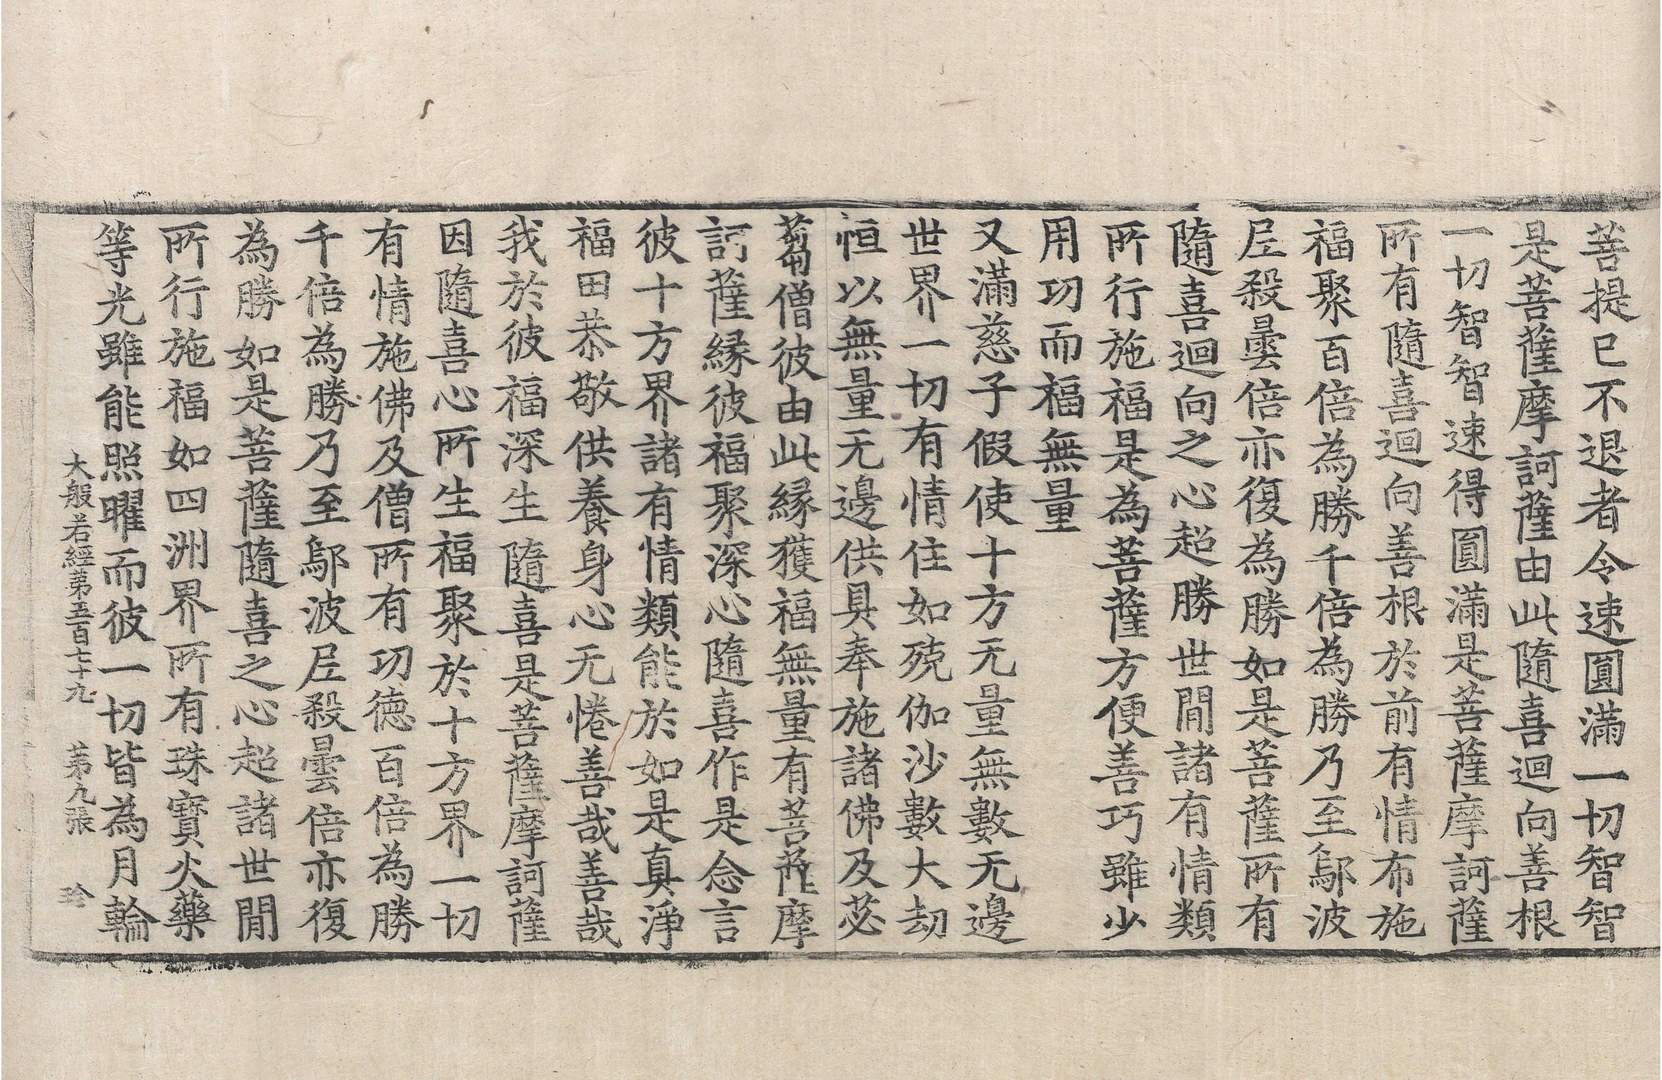 菩提已不退者令速圓滿一切智智
是菩薩摩訶薩由此隨喜迴向善根
一切智智速得圓滿是菩薩摩訶薩
所有隨喜迴向善根於前有情布施
福聚百倍為勝千倍為勝乃至鄔波
尼殺曇倍亦復為勝如是菩薩所有
隨喜迴向之心超勝世間諸有情類
所行施福是為菩薩方便善巧雖少
用功而福無量
又滿慈子假使十方无量無數无邊
世界一切有情住如殑伽沙數大劫
恒以無量无邊供具奉施諸佛及苾
芻僧彼由此緣獲福無量有菩薩摩
訶薩緣彼福聚深心隨喜作是念言
彼十方界諸有情類能於如是真淨
福田恭敬供養身心无惓善哉善哉
我於彼福深生隨喜是菩薩摩訶薩
因隨喜心所生福聚於十方界一切
有情施佛及僧所有功德百倍為勝
千倍為勝乃至鄔波尼殺曇倍亦復
為勝如是菩薩隨喜之心超諸世間
所行施福如四洲界所有珠寶火藥
等光雖能照曜而彼一切皆為月輪
大般若經第五百七十九　第九張　珍